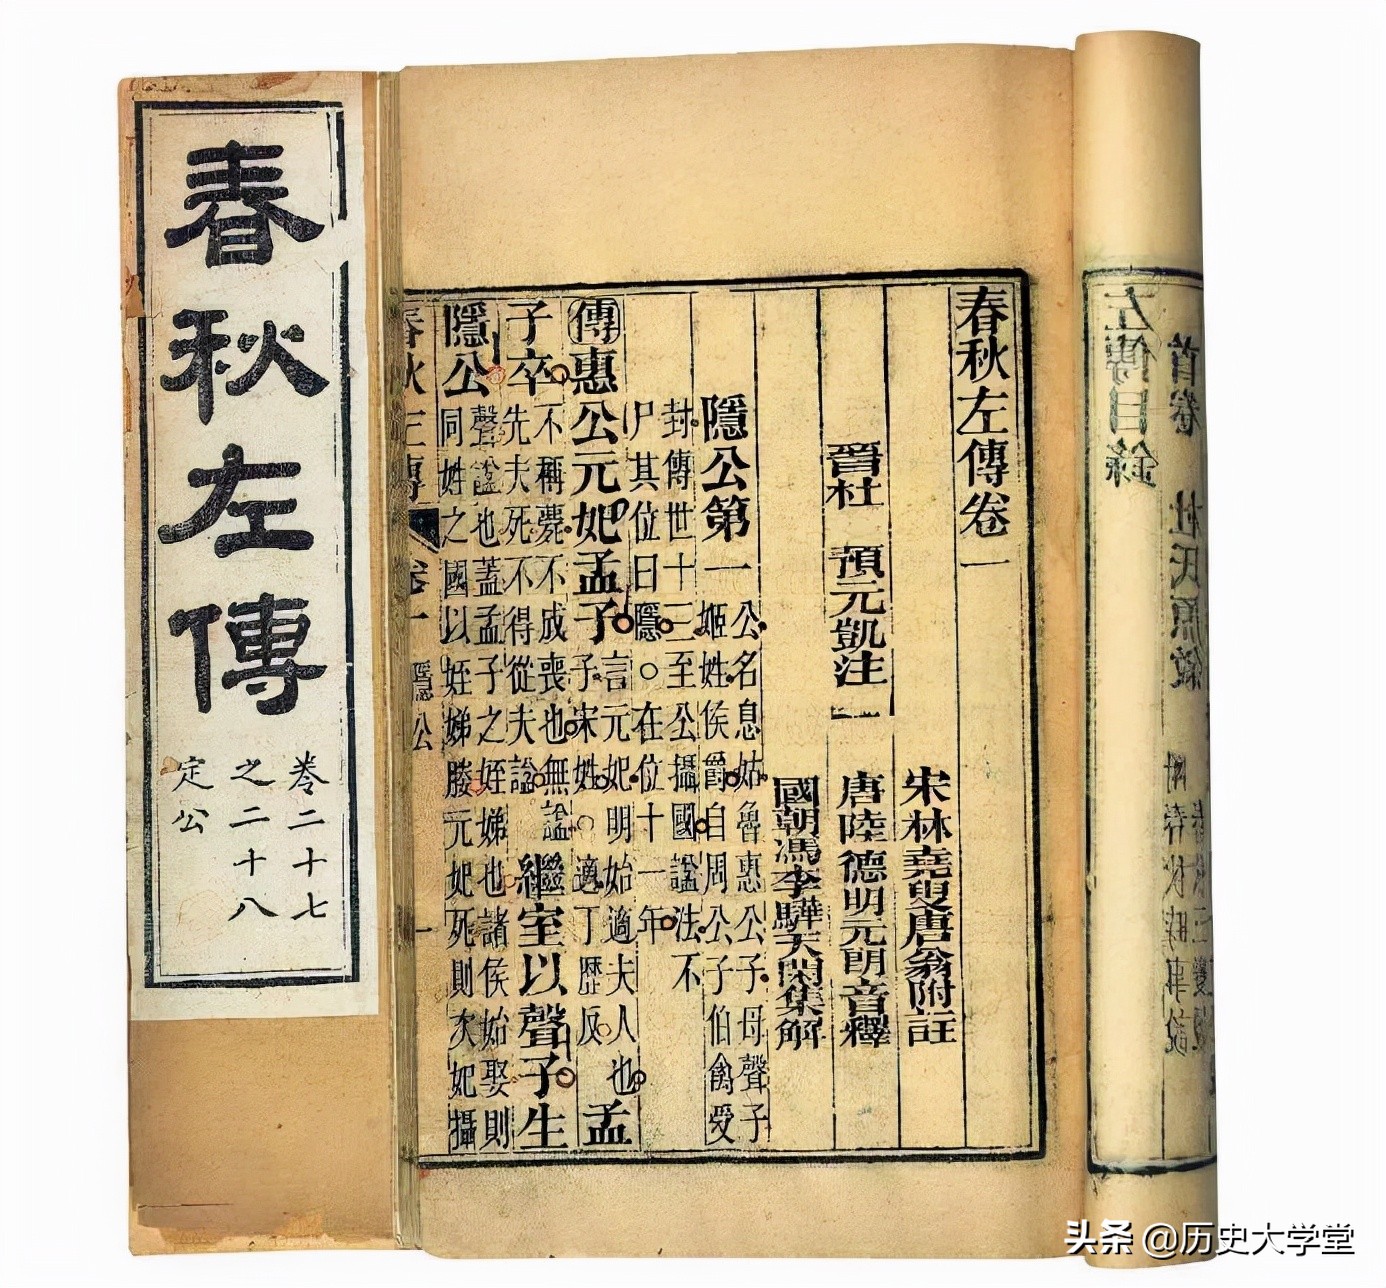 春秋左傳
卷二十七
之二十八
定公
左傳目錄
首卷 杜氏原敘
春秋左傳卷一
宋林堯叟唐翁附註
晉杜 預元凱注 唐陸德明元朗音釋
國朝馮李驊天閑集解
隱公第一 公名息姑魯惠公子母聲子
姬姓侯爵自周公子伯禽受
封傳世十三至公攝國諡法不
尸其位曰隱○在位十一年
傳惠公元妃孟子 言元妃明始適夫人也
子宋姓○適丁歷反 孟
子卒 不稱薨不成喪也無諡
先夫死不得從夫諡 繼室以聲子生
隱公 聲諡也蓋孟子之姪娣也諸侯始娶則
同姓之國以姪娣媵元妃死則次妃攝
隱公 一
头条 @历史大学堂